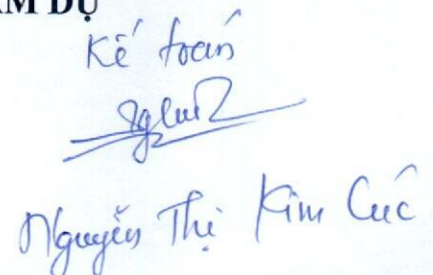 ÁM DỤ
Kế toán
Nguyễn Thị Kim Cúc